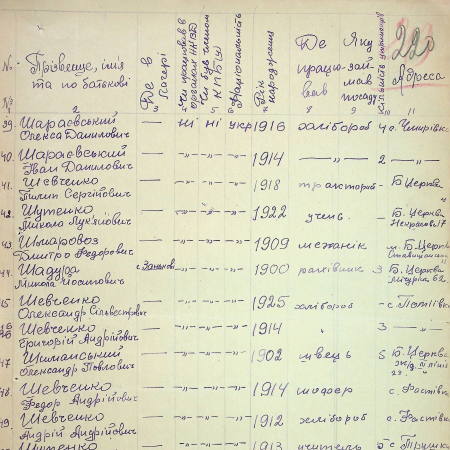 220
№ Прізвище, ім'я та по батькові Де в Таборі Чи працював в органах НКВД Чи був членом КП(б)У Національність Рік народження Де працював Яку займав посаду Кількість утриманців Адреса
2 3 5 6 8 9 10 11
39. Шараєвський Олекса Данилович — Ні ні укр 1916 хлібороб 4 о. Чмирівка
40. Шараєвський Іван Данилович — -„- -„- -„- 1914 — „ — 2 — „ —
41. Шевченко Пилип Сергійович — -„- -„- -„- 1918 тракторист - Б. Церква
42. Шутенко Микола Лук'янович — -„- -„- -„- 1922 учень - Б. Церква Некрасова 17
43. Шмаровоз Дмитро Федорович — -„- -„- -„- 1909 механік м. Б. Церква
44. Шадура Микола Йостович -„- -„- -„- 1900 3 Б. Церква Мічуріна 62
45 Шевченко Олександр Сільвестрович — -„- -„- -„- 1925 хлібороб - с.
46 Шевченко Григорій Андрійович — -„- -„- -„- 1914 „ 3 — „ —
47 Олександр Павлович — -„- -„- -„- 1902 швець 5 Б. Церква
48. Шевченко Федор Андрійович — -„- -„- -„- 1914 шофер с. Фастівка
49. Шевченко Андрій Андрійович — -„- -„- -„- 1912 хлібороб с. Фастівка
Шутенко 1913 учитель